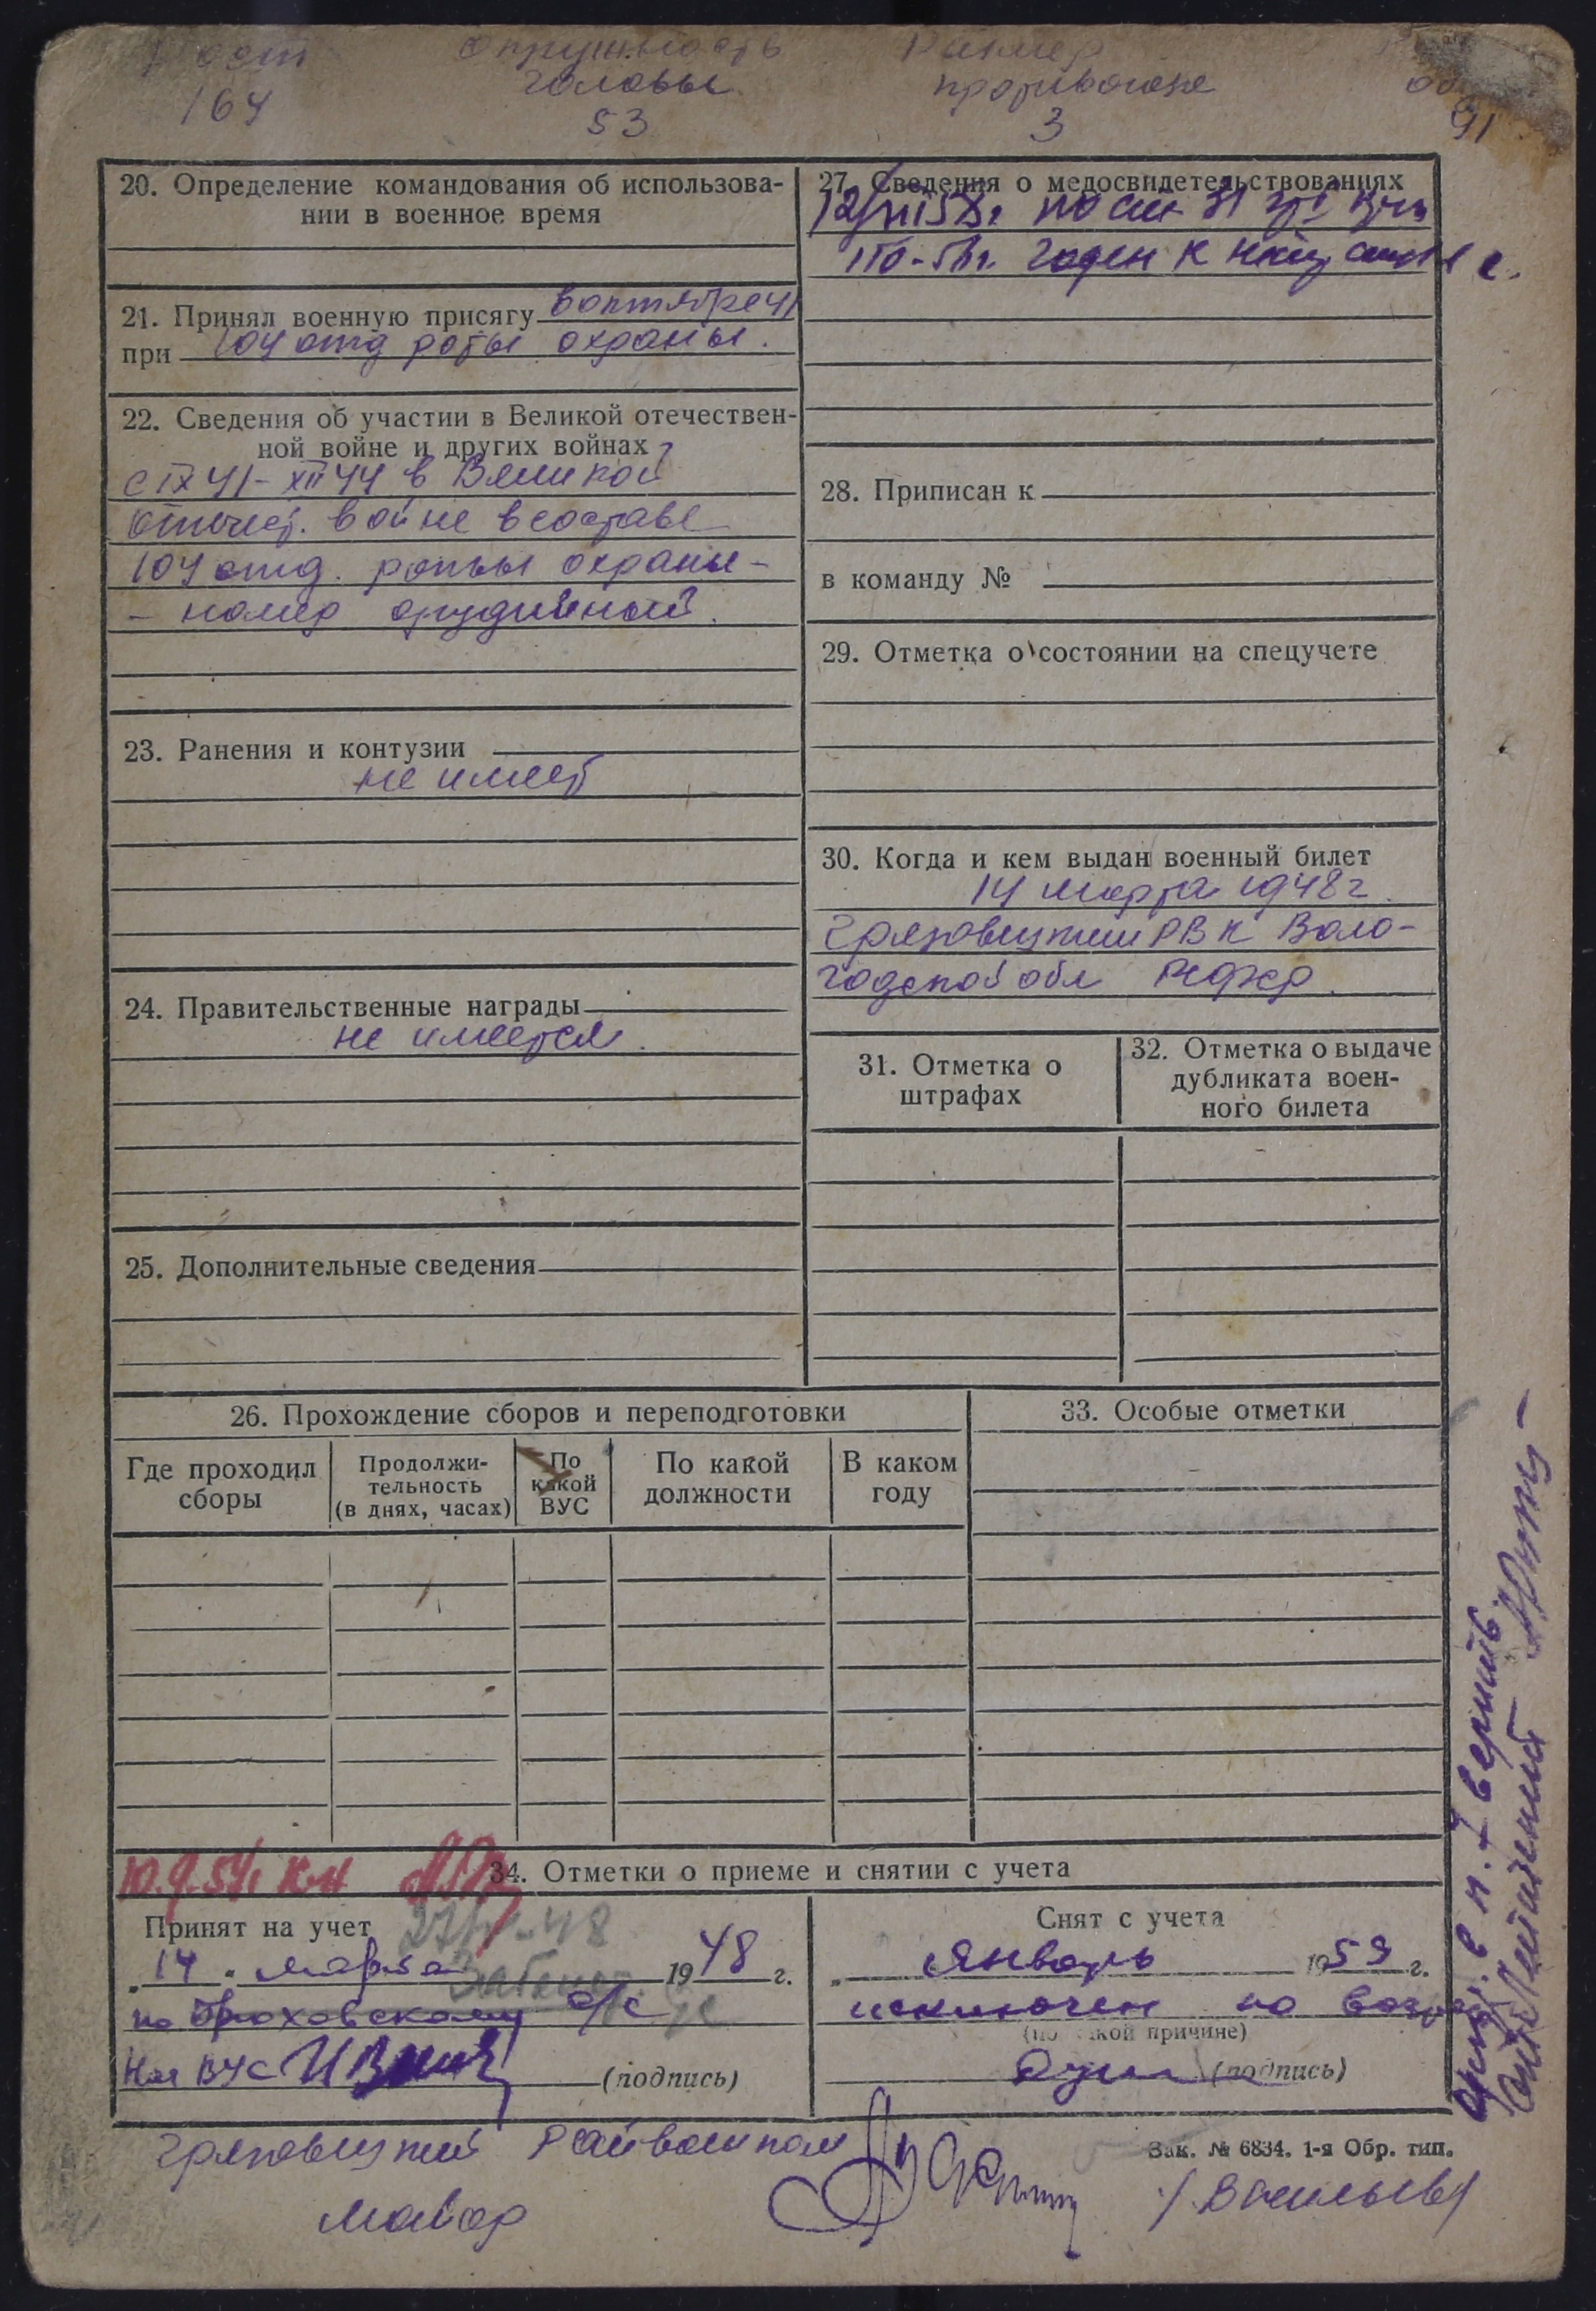 Рост Окружность Размер
головы противогаза
164 53 3 91
20. Определение командования об использова-
нии в военное время
21. Принял военную присягу в октябре 41
при 104 отд роты охраны.
22. Сведения об участии в Великой отечествен-
ной войне и других войнах
с IX 41 - XII 44 в Великой
отечест. войне в составе
104 отд. роты охраны -
- номер орудийный.
23. Ранения и контузии
не имеет
24. Правительственные награды
не имеется.
25. Дополнительные сведения
27. Сведения о медосвидетельствованиях
по ст. 31
годен к
28. Приписан к
в команду №
29. Отметка о состоянии на спецучете
30. Когда и кем выдан военный билет
14 марта 1948 г.
Грязовецким РВК Воло-
годской обл РСФСР.
31. Отметка о
штрафах
32. Отметка о выдаче
дубликата воен-
ного билета
26. Прохождение сборов и переподготовки
Где проходил
сборы
Продолжи-
тельность
(в днях, часах)
По
какой
ВУС
По какой
должности
В каком
году
33. Особые отметки
34. Отметки о приеме и снятии с учета
Принят на учет
„14" марта 1948 г.
по с/с
Нач ВУС
(подпись)
Снят с учета
„ январь 1959 г.
исключен по
(по какой причине)
(подпись)
Грязовецкий Райвоенком
майор
/Васильев/
Зак. № 6834. 1-я Обр. тип.